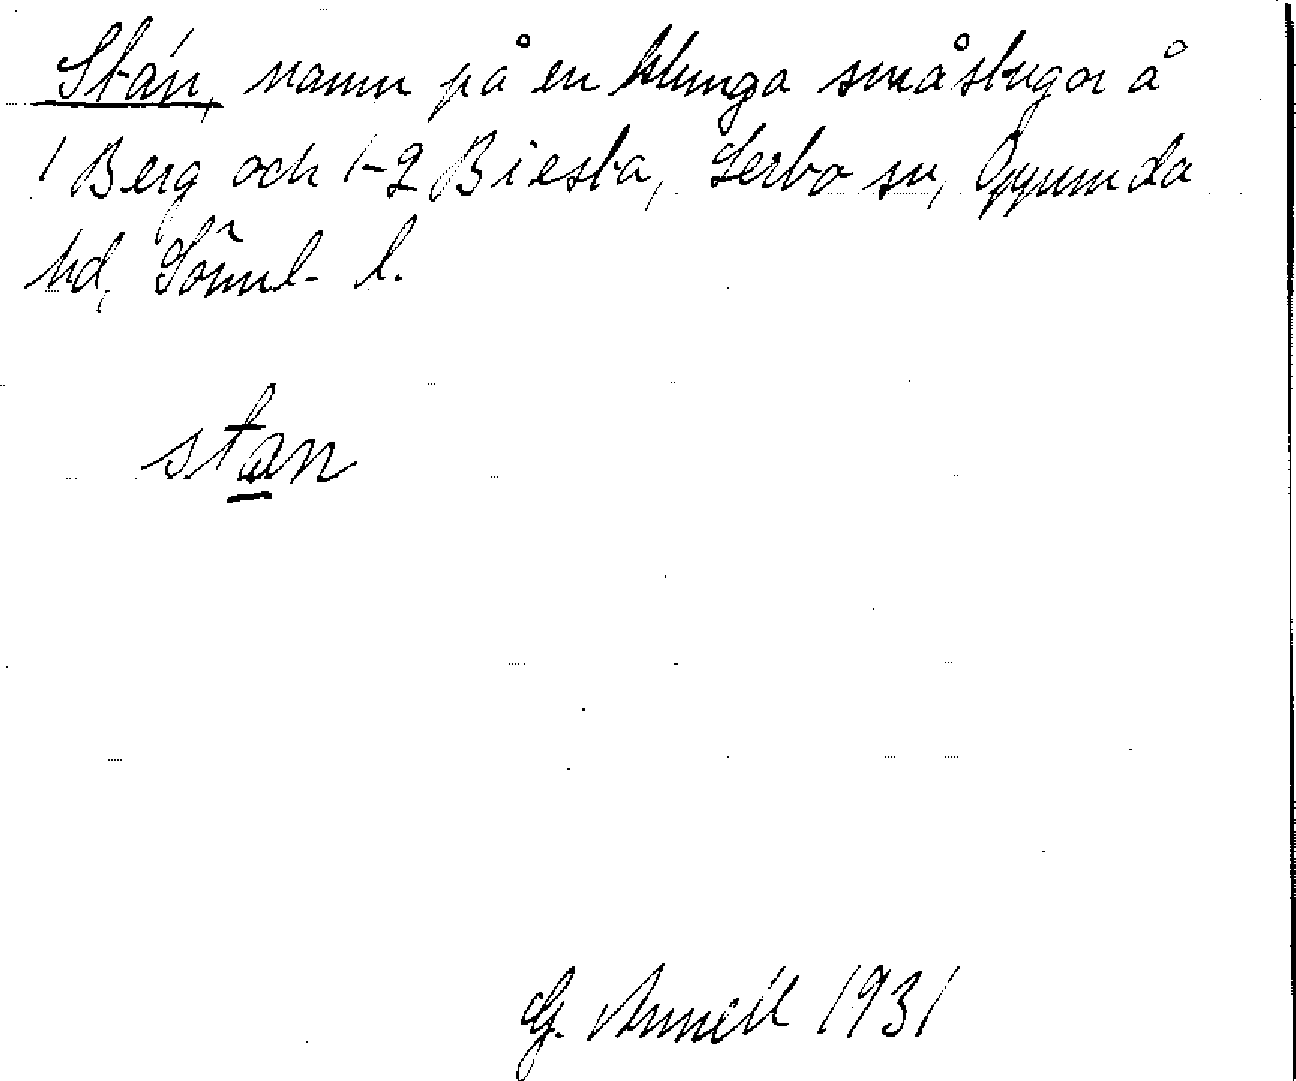 Stán, namn på en klunga småstugor å
1 Berg och 1-2 Biesta, Lerbo sn, Oppunda
hd, Söml. l.
stan
G. Annell 1931